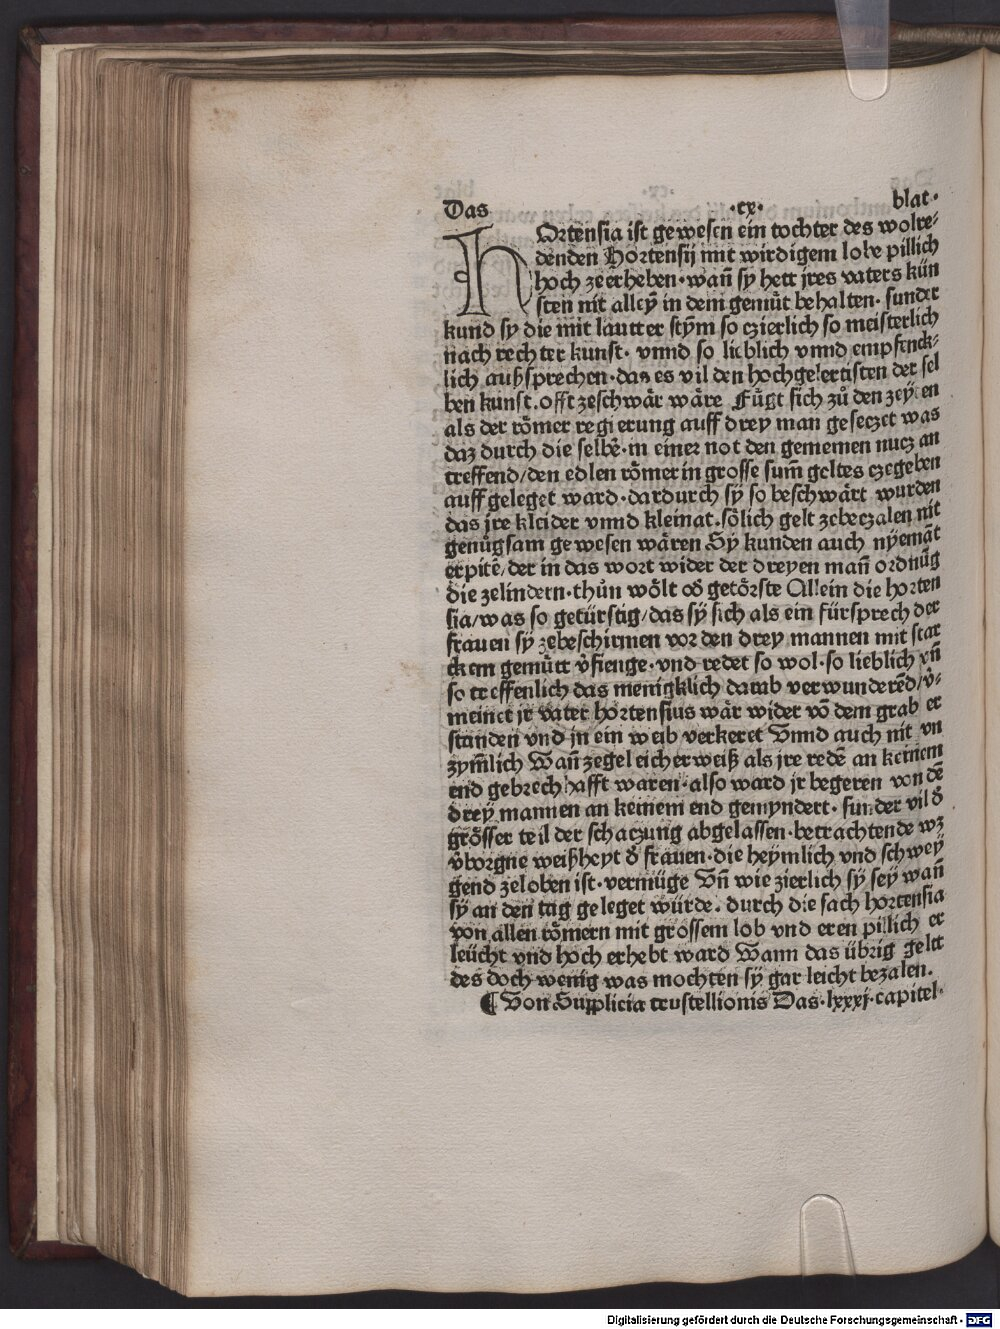 Das ·cx· blat·
HOrtensia ist gewesen ein tochter des wolre⸗
denden Hortensij mit wirdigem lobe pillich
hoch zeerheben·wañ sy hett jres vaters kün
sten nit alleÿ in dem gemüt behalten· sunder
kund sy die mit lautter stÿm so czierlich so meisterlich
nach rechter kunst· vnnd so lieblich vnnd empfenck⸗
lich außsprechen·das es vil den hochgelertisten der sel
ben kunst·offt zeschwär wäre Fügt sich zů den zeyten
als der römer regierung auff drey man geseczet was
daz durch die selbē·in einer not den gemeinen nucz an
treffend/den edlen römerin grosse sum̄ geltes czegeben
auff geleget ward·dardurch sÿ so beschwärt wurden
das jre kleider vnnd kleinat·sölich gelt zebeczalen nit
genůgsam gewesen wären Sy kunden auch nÿemāt
erpitē/der in das wort wider der dreyen mañ ordnūg
die zelindern·thůn wölt oď getörste Allein die horten
sia/was so getürstig/das sÿ sich als ein fürsprech der
frauen sÿ zebeschirmen vor den drey mannen mit star
ckem gemütt v̓fienge·vnd redet so wol·so lieblich vñ
so treffenlich das menigklich darab verwunderēd/v̓⸗
meinet jr vater hortensius wär wider vō dem grab er
standen vnd jn ein weib verkeret Vnnd auch nit vn
zym̄lich Wañ zegeleicherweiß als jre redē an keinem
end gebrechhafft waren·also ward jr begeren von dē
drey mannen an keinem end gemyndert· sunder vil ď
grösser teil der schaczung abgelassen·betrachtende wz
v̓borgne weißheyt ď frauen·die heÿmlich vnd schwey
gend zeloben ist·vermüge Vñ wie zierlich sÿ sey wañ
sÿ an den tag geleget würde· durch die sach hortensia
von allen römern mit grossem lob vnd eren pillich er
leücht vnd hoch erhebt ward Wann das übrig gelt
des doch wenig was mochten sÿ gar leicht bezalen.
¶ Von Supplicia trustellionis Das·lxxxj·capitel·
Digitalisierung gefördert durch die Deutsche Forschungsgemeinschaft - DFG